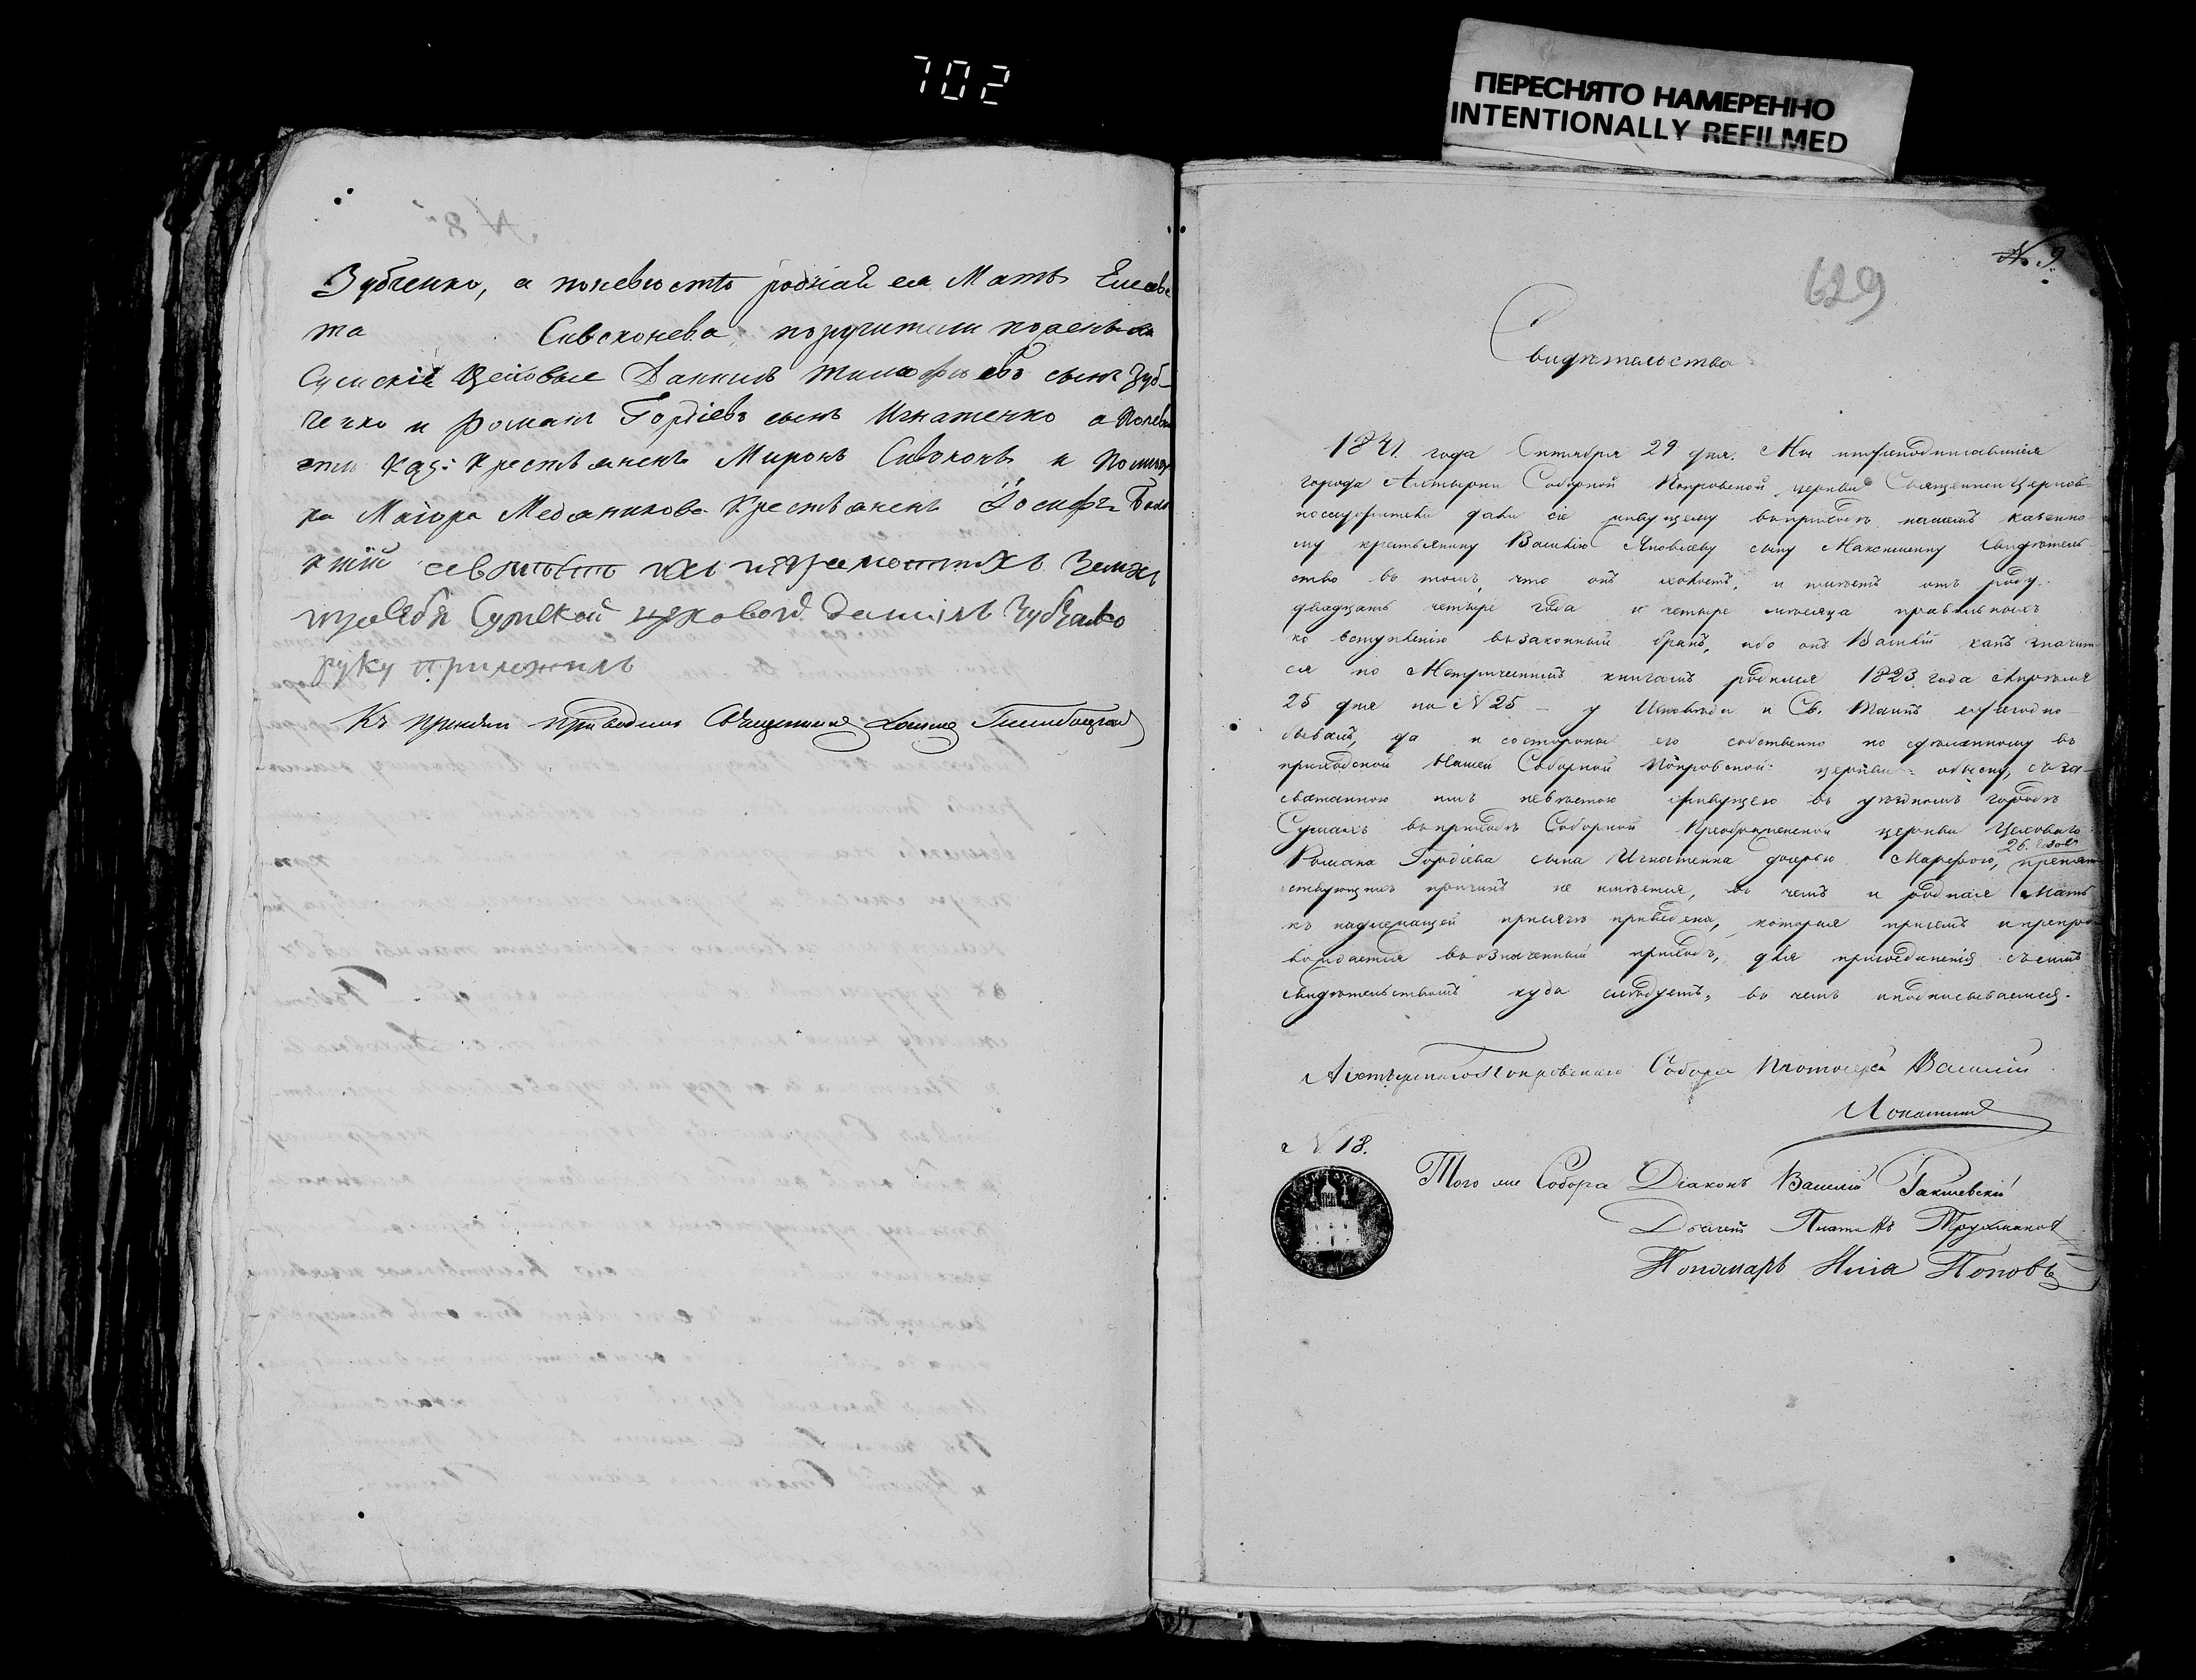 702
ПЕРЕСНЯТО НАМЕРЕННО
INTENTIONALLY REFILMED
Зубченко, а поневѣстѣ родная ея Мать Елисаве
та Сивоконева, поручители поженихѣ
Сумскіе Цеховые Даніилъ Тимофѣевъ сынъ Зуб-
ченко и Романъ Гордіевъ сынъ Игнатенко а поневѣ
стѣ каз: крестьянинъ Миронъ Сивоконь и помѣщи
ка Маіора Медяникова крестьянинъ Іосифъ
за
Сумской цеховой Данiилъ Зубченко
руку приложилъ
Къ присяги приводилъ Священникъ
№ 9.
629
Свидѣтельство
1841 года Октября 29 дня. Мы нижеподписавшіеся
города Ахтырки Соборной Покровской церкви Священноцерков-
нослужители дали сіе живущему въ приходѣ нашемъ казенно-
му крестьянину Василію Яковлеву сыну Максименку свидѣтель-
ство въ томъ, что онъ холостъ, и имѣетъ отъ роду
двадцать четыре года и четыре мѣсяца правильныхъ
ко вступленію въ законный бракъ, ибо онъ Василій какъ значит-
ся по Метрическимъ книгамъ родился 1823 года Апрѣля
25 дня по № 25 – у Исповѣди и Св. Таинъ ежегодно
бывалъ, да и со стороны его собственно по сдѣланному въ
приходской нашей Соборной Покровской церкви обыску, съ за-
сватанною имъ невѣстою живущею въ уѣздномъ городѣ
Сумахъ въ приходѣ Соборной Преображенской церкви Цеховаго
26. годовъ
Романа Гордіева сына Игнатенка дочерью Марфою, препят-
ствующихъ причинъ не имѣется, въ чемъ и родная Мать
къ надлежащей присягѣ приведена, которая при семъ и препро-
вождается въ означенный приходъ, для присоединенія съ симъ
свидѣтельствомъ куда слѣдуетъ, въ чемъ и подписываемся.
Ахтырскаго Покровскаго Собора Протоіерей Василій
№ 18.
Того же Собора Діаконъ Василій
Дьячекъ
Пономарь Илія Поповъ